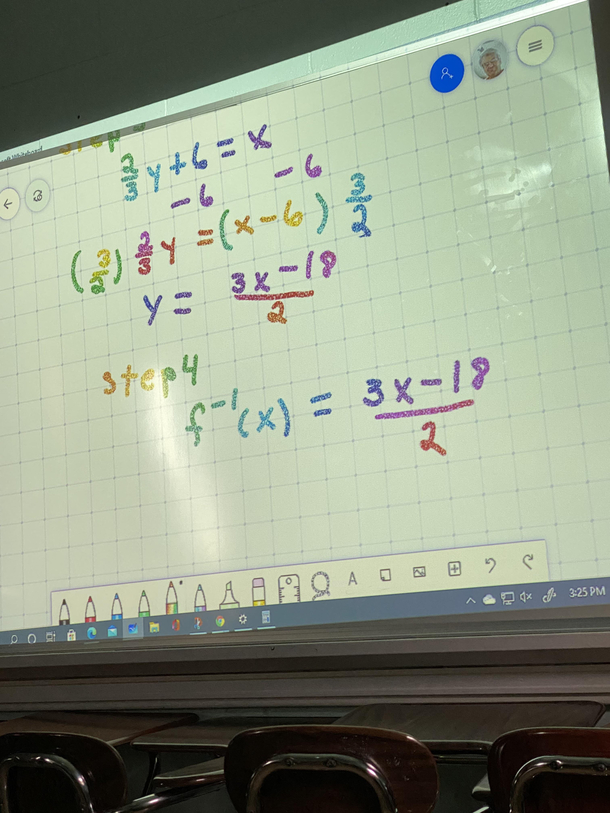 step
2/3 y + 6 = x
- 6 - 6
(3/2) 2/3 y = (x - 6) 3/2
y = 3x - 18 / 2
step 4
f⁻¹(x) = 3x - 18 / 2
A
3:25 PM